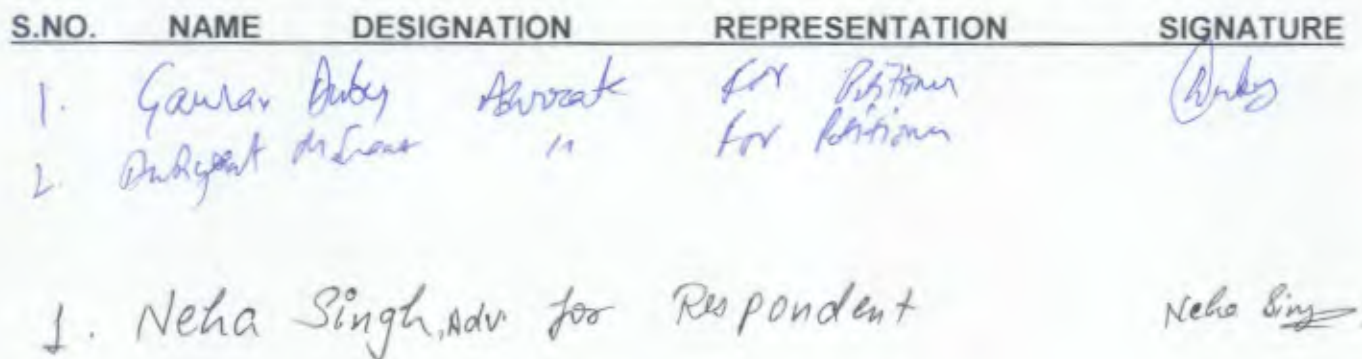 S.NO. NAME DESIGNATION REPRESENTATION SIGNATURE
1. Gaurav Dubey Advocate for Petitioner Dubey
2. " for Petitioner
1. Neha Singh, Adv. for Respondent Neha Singh